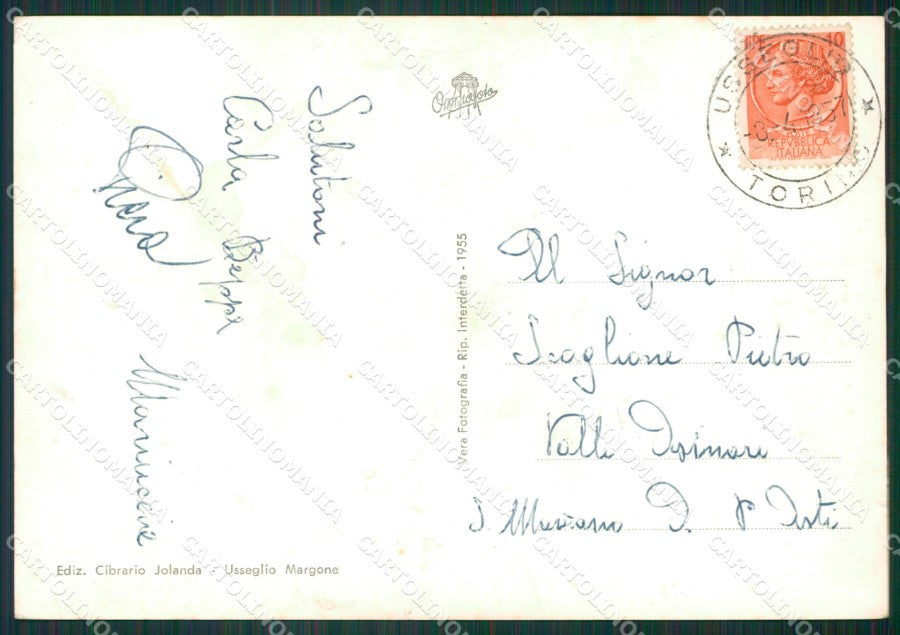 Salutoni
Carla Beppe
Piera
Omniafoto
Vera Fotografia - Rip. Interdetta - 1955
USSEGLIO
TORINO
10
REPVBBLICA
ITALIANA
Al Signor
Scaglione Pietro
Valle
S. Marzano D. P Asti
Ediz. Cibrario Jolanda - Usseglio Margone
CARTOLINOMANIA